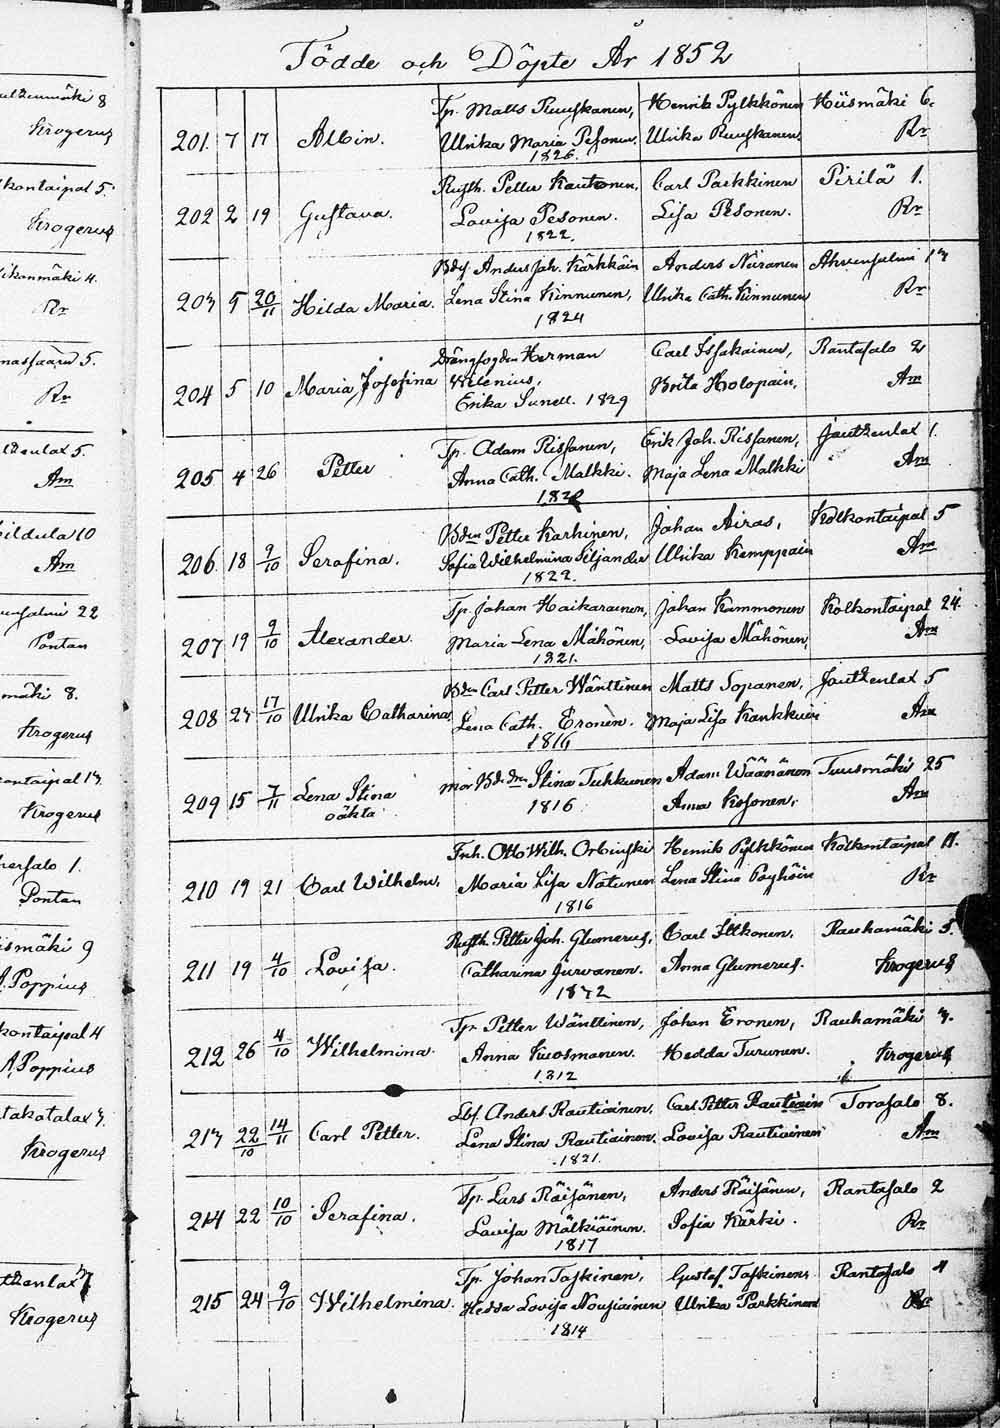 Födde och Döpte År 1852
ultzenmäki 8
Krogerus
kontaipal 5.
Krogerus
ikonmäki 4.
Rr
nassaari 5.
Rr
tzenlax 5.
Am
ildula 10
Am
ensalmi 22
Pontan
mäki 8.
Krogerus
ontaipal 13
Krogerus
hersalo 1.
Pontan
ismäki 9
A. Poppius
kontaipal 4
A. Poppius
takatalax 3.
Krogerus
tzenlax 7
Krogerus
Tp. Matts Ruuskanen, Henrik Pylkkönen Hiismäki 6.
201. 7 17 Albin. Ulrika Maria Pesonen. Ulrika Ruuskanen. Rr
1826.
Rusth. Petter Kautonen, Carl Parkkinen Pirilä 1.
202 2 19 Gustava. Lovisa Pesonen. Lisa Pesonen. Rr
1822.
Bdsf. Anders Joh. Kärkkäin Anders Niiranen Ahvensalmi 13
203 5 20/11 Hilda Maria. Lena Stina Kinnunen, Ulrika Cath. Kinnunen Rr
1824
Drängfogden Herman Carl Issakainen, Rantasalo 2
204 5 10 Maria Josefina Wilenius, Brita Holopain, Am
Erika Sunell. 1829
Tp. Adam Rissanen, Erik Joh. Rissanen, Jautzenlax 1.
205 4 26 Petter Anna Cath. Malkki. Maja Lena Malkki Am
Bden Petter Karhinen, Johan Airas, Kolkontaipal 5
206. 18 9/10 Serafina. Sofia Wilhelmina Siljander Ulrika Kemppain Am
1822.
Tp. Johan Haikarainen, Johan Kammonen Kolkontaipal 24.
207 19 9/10 Alexander. Maria Lena Mähönen, Lovisa Mähönen, Am
1821.
Bden Carl Petter Wänttinen Matts Sopanen, Jautzenlax 5
208 23 17/10 Ulrika Catharina. Lena Cath. Eronen. Maja Lisa Kankkuin Am
1816
mor Bdedn Stina Tukkunen Adam Wäänänen Tuusmäki 25
209 15 7/11 Lena Stina 1816 Anna Kosonen, Am
oäkta
Inh. Otto Wilh. Orbinski Henrik Pylkkönen Kolkontaipal 11.
210 19 21 Carl Wilhelm. Maria Lisa Natunen Lena Stina Pöyhöin Rr
1816
Rusth. Petter Joh. Glumerus, Carl Ittkonen. Rauhamäki 5.
211 19 4/10 Lovisa. Catharina Jurvanen. Anna Glumerus. Krogerus
Tp. Petter Wänttinen, Johan Eronen, Rauhamäki 3.
212 26 4/10 Wilhelmina. Anna Kuosmanen. Hedda Turunen. Krogerus
1812
Lbf. Anders Rautiainen. Carl Petter Rautiain Torasalo 8.
213 22/10 14/11 Carl Petter. Lena Stina Rautiainen. Lovisa Rautiainen Am
1821.
Tp. Lars Räisänen, Anders Räisänen, Rantasalo 2
214 22 10/10 Serafina. Lovisa Mälkiäinen. Sofia Kärki. Rr
1817
Tp. Johan Taskinen, Gustaf Taskinen, Rantasalo 4
215 24 9/10 Wilhelmina. Hedda Lovisa Nousiainen Ulrika Parkkinen Rr
1814